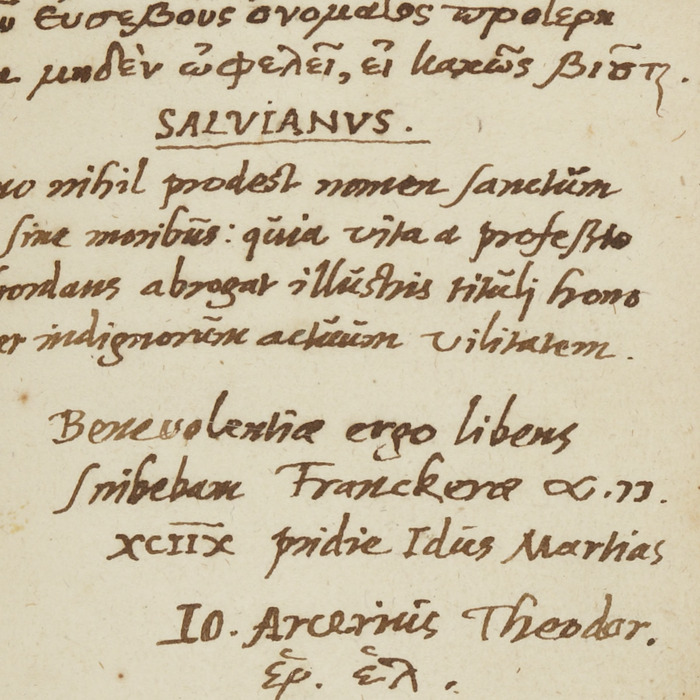 Ευσεβους ονομαlος προlερη
μηδὲν ὠφελεῖ, εἰ κακῶς βιοῖ
SALVIANVS.
nihil prodest nomen sanctum
sine moribus: quia vita a professio
abrogat illustris tituli hono
indignorum actuum vilitatem.
Benevolentiæ ergo libens
scribebam Franckeræ
XCIIX pridie Idus Martias
Io. Arcerius Theodor.
ἑρ. ἑλ.